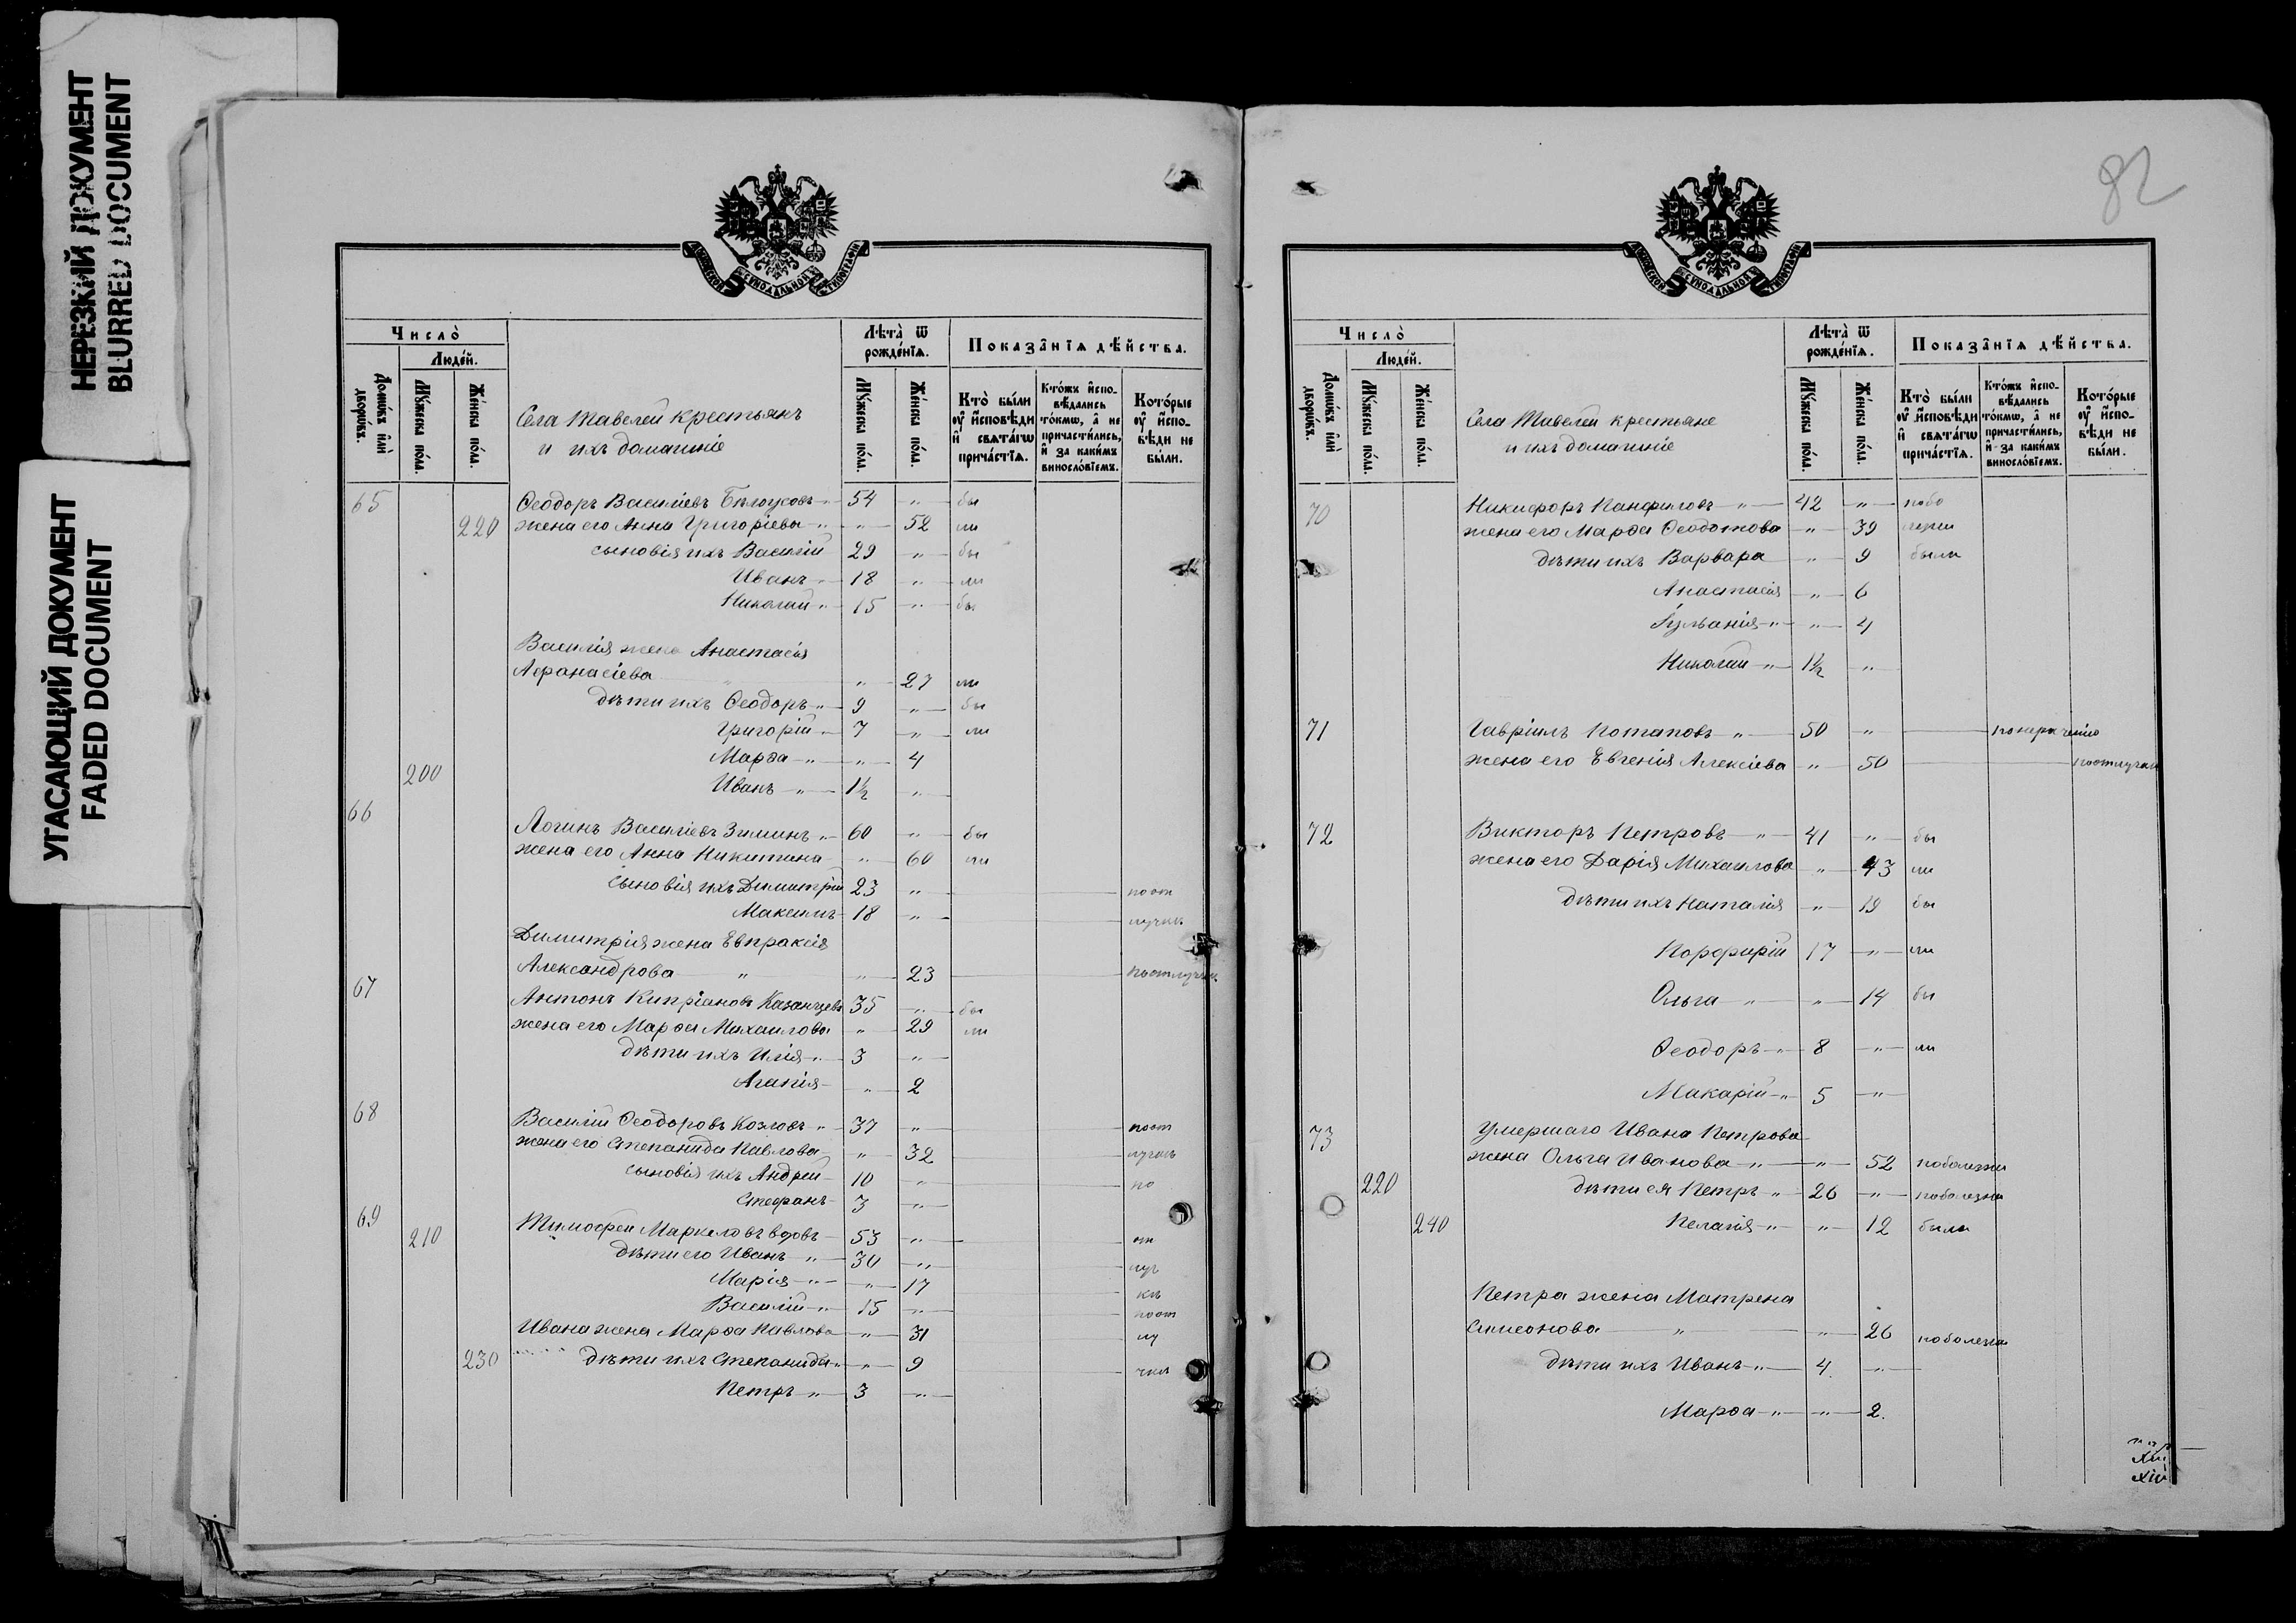 НЕРЕЗКИЙ ДОКУМЕНТ
BLURRED DOCUMENT
УГАСАЮЩИЙ ДОКУМЕНТ
FADED DOCUMENT
Число̀
Людє́й.
Домѡ́въ и҆лѝ дворѡ́въ.
Мꙋ́жеска по́ла.
Же́нска по́ла.
Села Тавелей крестьянъ
и ихъ домашніе
Лѣта̀ ѿ рожде́нїѧ.
Мꙋ́жеска по́ла.
Же́нска по́ла.
Показа̑нїѧ дѣ́йства.
Кто̀ бы́ли ᲂу҆ и҆сповѣ́ди и҆ свѧта́гѡ прича́стїѧ.
Кто́жъ и҆сповѣ́дались то́кмѡ, а҆ не причасти́лись, и҆ за каки́мъ винослові́емъ.
Кото́рые ᲂу҆ и҆сповѣ́ди не бы́ли.
65 Ѳеодоръ Василіевъ Бѣлоусовъ „ 54 „ бы
220 жена его Анна Григоріева „ „ 52 ли
сыновія ихъ Василій 29 „ бы
Иванъ „ 18 „ ли
Николай „ 15 „ бы
Василія жена Анастасія
Аѳанасіева „ „ 27 ли
дѣти ихъ Ѳеодоръ „ 9 „ бы
Григорій „ 7 „ ли
Марѳа „ „ 4
200 Иванъ „ 1½ „
66 Логинъ Василіевъ Зиминъ „ 60 „ бы
жена его Анна Никитина „ 60 ли
сыновія ихъ Димитрій 23 „ поот
Максимъ 18 „ лучкѣ
Димитрія жена Евпраксія
Александрова „ „ 23 поотлучкѣ
67 Антонъ Кипріановъ Казанцевъ 35 „ бы
жена его Марѳа Михаилова „ 29 ли
дѣти ихъ Илія „ 3 „
Агапія „ 2
68 Василій Ѳеодоровъ Козловъ „ 37 „ поот
жена его Степанида Павлова „ 32 лучкѣ
сыновія ихъ Андрей 10 „ по
Стефанъ 3 „
69 210 Тимоѳей Маркеловъ вдовъ 53 „ от
дѣти его Иванъ „ 30 „ луч
Марія „ „ 17 кѣ
Василій „ 15 „ поот
Ивана жена Марѳа Павлова „ 31 лу
230 дѣти ихъ Степанида „ „ 9 чкѣ
Петръ „ 3 „
82
Число̀
Людє́й.
Домѡ́въ и҆лѝ дворѡ́въ.
Мꙋ́жеска по́ла.
Же́нска по́ла.
Села Тавелей крестьяне
и ихъ домашніе
Лѣта̀ ѿ рожде́нїѧ.
Мꙋ́жеска по́ла.
Же́нска по́ла.
Показа̑нїѧ дѣ́йства.
Кто̀ бы́ли ᲂу҆ и҆сповѣ́ди и҆ свѧта́гѡ прича́стїѧ.
Кто́жъ и҆сповѣ́дались то́кмѡ, а҆ не причасти́лись, и҆ за каки́мъ винослові́емъ.
Кото́рые ᲂу҆ и҆сповѣ́ди не бы́ли.
70 Никифоръ Панфиловъ „ 42 „
жена его Марѳа Ѳеодотова „ 39
дѣти ихъ Варвара „ 9 были
Анастасія „ 6
Іуліанія „ „ 4
Николай „ 1½ „
71 Гавріилъ Потаповъ „ 50 „ понераченію
жена его Евгенія Алексіева „ 50 поотлучкѣ
72 Викторъ Петровъ „ 41 „ бы
жена его Дарія Михаилова „ 43 ли
дѣти ихъ Наталія „ 19 бы
Порфирій 17 „ ли
Ольга „ „ 14 бы
Ѳеодоръ „ 8 „ ли
Макарій „ 5 „
73 Умершаго Ивана Петрова
жена Ольга Иванова „ „ 52 поболезни
220 дѣти ея Петръ „ 26 „ поболезни
240 Пелагія „ „ 12 были
Петра жена Матрена
Симеонова „ „ 26 поболезни
дѣти ихъ Иванъ „ 4 „
Марѳа „ „ 2.